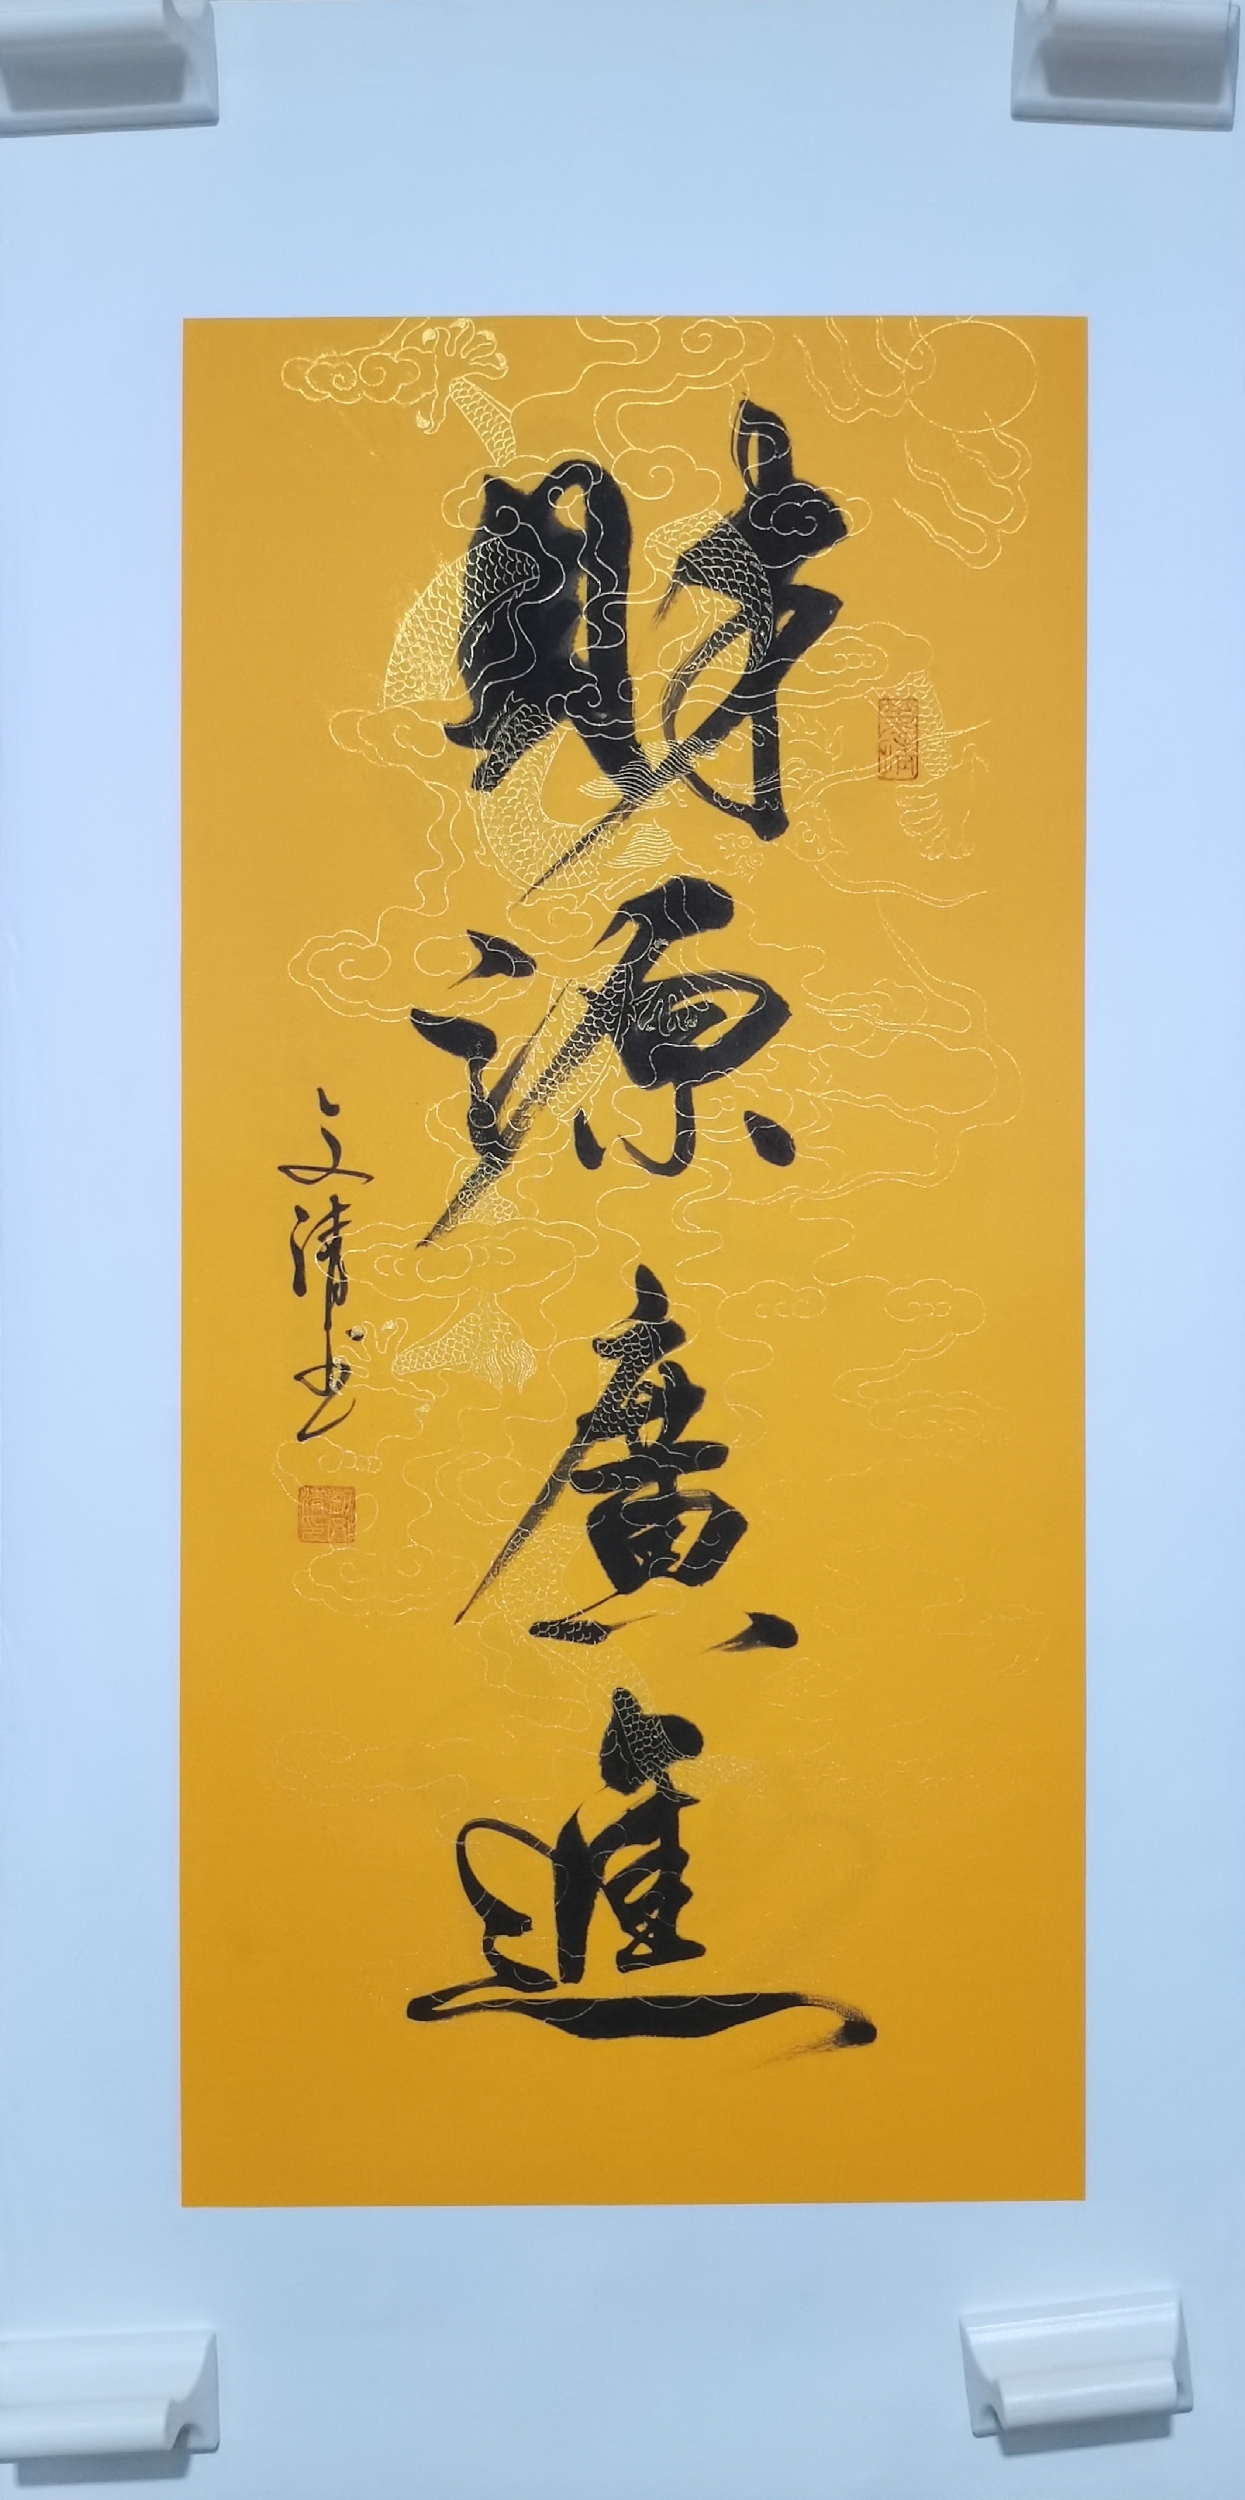 財源廣進
文清书